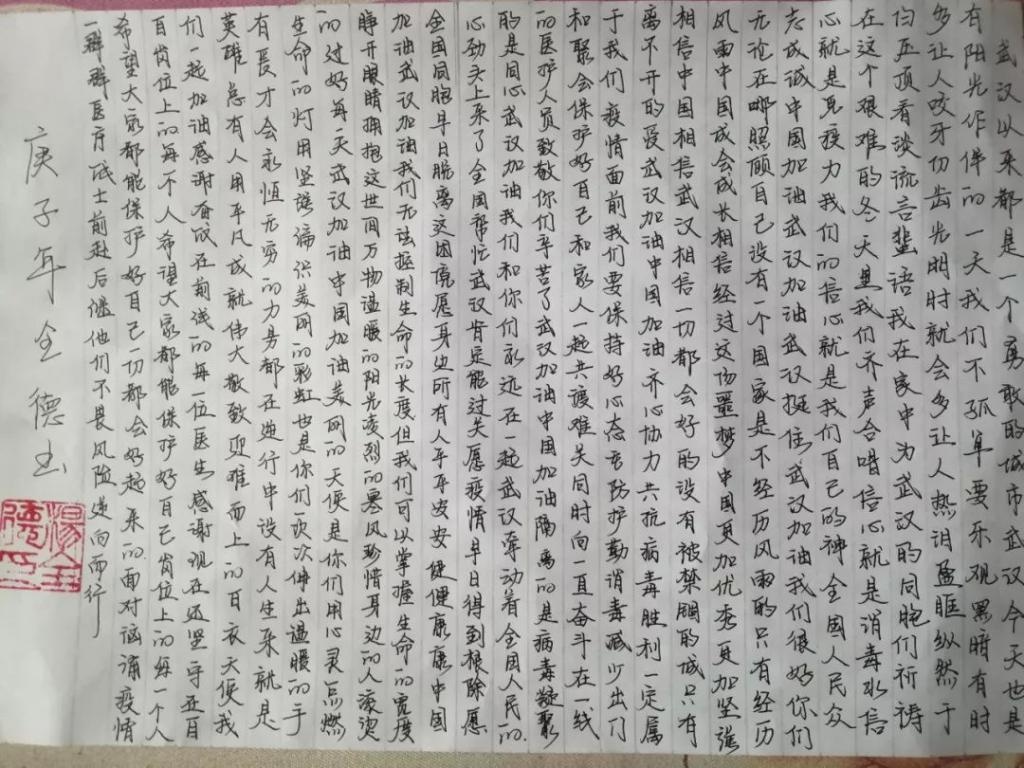 武汉以来都是一个勇敢的城市武汉今天也是
有阳光作伴的一天我们不孤单要乐观黑暗有时
多让人咬牙切齿光明时就会多让人热泪盈眶纵然于
在这个艰难的冬天里我们齐声合唱信心就是消毒水信
心就是免疫力我们的信心就是我们自己的神全国人民众
志成诚中国加油武汉加油武汉挺住武汉加油我们很好你们
无论在哪照顾自己没有一个国家是不经历风雨的只有经历
风雨中国成会成长相信经过这场噩梦中国更加优秀更加坚强
相信中国相信武汉相信一切都会好的没有被禁锢的城只有
离不开的爱武汉加油中国加油齐心协力共抗病毒胜利一定属
于我们疫情面前我们要保持好心态言防护勤消毒减少出门
和聚会保护好自己和家人一起共渡难关同时向一直奋斗在一线
的医护人员致敬你们辛苦了武汉加油中国加油隔离的是病毒凝聚
的是同心武汉加油我们和你们永远在一起武汉牵动着全国人民的
心劲头上来了全国帮忙武汉肯定能过关愿疫情早日得到根除愿
全国同胞早日脱离这困境愿身边所有人平平安安健健康康中国
加油武汉加油我们无法控制生命的长度但我们可以掌握生命的宽度
睁开眼睛拥抱这世间万物温暖的阳光凌烈的寒风珍惜身边的人
的过好每一天武汉加油中国加油美丽的天使是你们用心灵点燃
生命的灯用坚强谛识美丽的彩虹也是你们一次次伸出温暖的手
有长才会永恒无穷的力务都在进行中没有人生来就是
英雄总有人用平凡成就伟大敬致迎难而上的白衣天使我
们一起加油感谢奋战在前线的每一位医生感谢现在还坚守在自
百岗位上的每个人希望大家都能保护好自己岗位上的每一个人
希望大家都能保护好自己一切都会好起来的.面对汹涌疫情
一群群医疗战士前赴后继他们不畏风险逆向而行
庚子年全德书